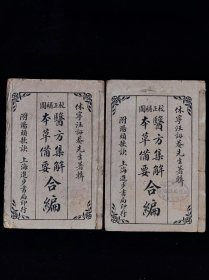 休寧汪訒菴先生著輯
校正補圖
醫方集解
本草備要
合編
附湯頭歌訣 上海進步書局印行
休寧汪訒菴先生著輯
校正補圖
醫方集解
本草備要
合編
附湯頭歌訣 上海進步書局印行